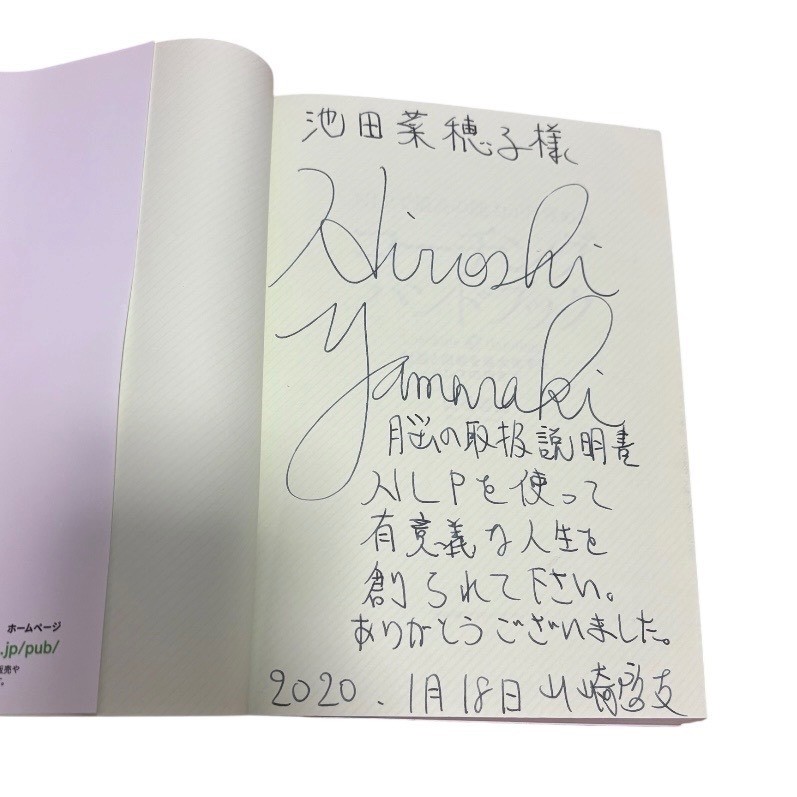 池田菜穂子様
Hiroshi
Yamasaki
脳の取扱説明書
NLPを使って
有意義な人生を
創られて下さい。
ありがとうございました。
2020.1月18日 山崎啓支
ホームページ
.jp/pub/
販売や